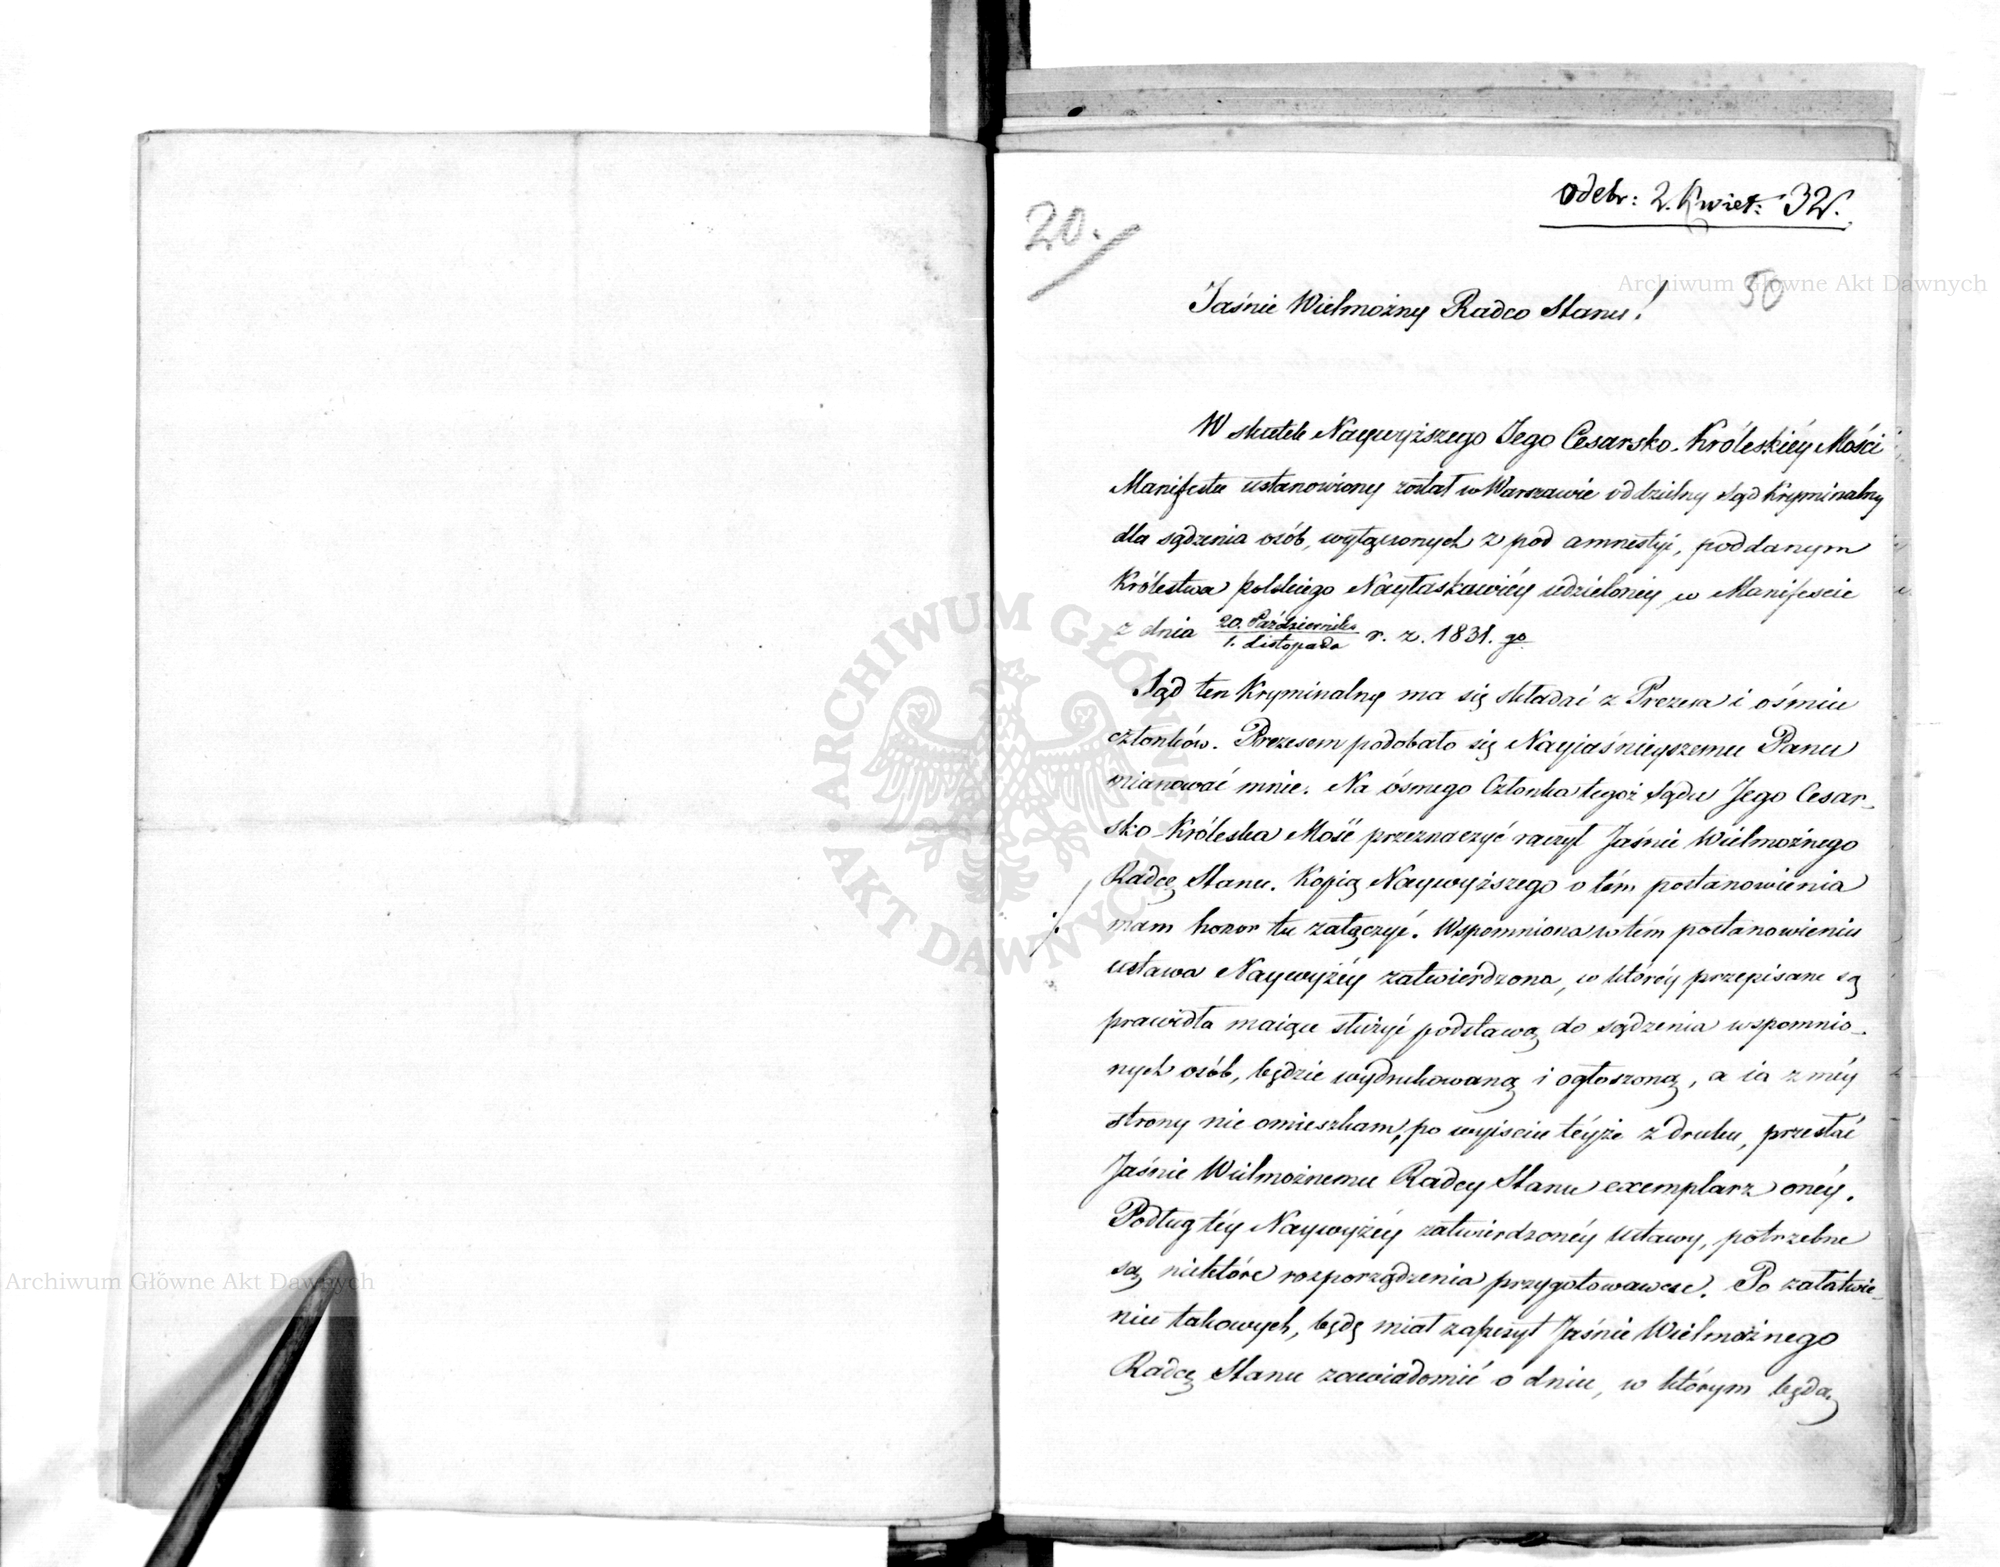 odebr: 2. Kwiet: 32.
20.
50
Jaśnie Wielmożny Radco Stanu!
W skutek Naywyższego Jego Cesarsko-Króleskiéy Mości
Manifestu ustanowiony został w Warszawie oddzielny Sąd Kryminalny
dla sądzenia osób, wyłączonych z pod amnestyi, poddanym
Królestwa polskiego Nayłaskawiéy udzieloney w Manifeście
z dnia 20. Października / 1. Listopada r. z. 1831. go
Sąd ten Kryminalny ma się składać z Prezesa i ośmiu
członków. Prezesem podobało się Nayiaśnieyszemu Panu
mianować mnie. Na ósmego Członka tegoż Sądu Jego Cesar-
sko-Króleska Mość przeznaczyć raczył Jaśnie Wielmożnego
Radcę Stanu. Kopią Naywyższego o tém postanowienia
mam honor tu załączyć. Wspomniona w tém postanowieniu
ustawa Naywyżéy zatwierdzona, w któréy przepisane są
prawidła maiące służyć podstawą do sądzenia wspomnio-
nych osób, będzie wydrukowaną i ogłoszoną, a ia z méy
strony nie omieszkam, po wyiściu téyże z druku, przesłać
Jaśnie Wielmożnemu Radcy Stanu exemplarz onéy.
Podług téy Naywyżéy zatwierdzonéy ustawy, potrzebne
są niektóre rozporządzenia przygotowawcze. Po załatwie-
niu takowych, będę miał zaszczyt Jaśnie Wielmożnego
Radcę Stanu zawiadomić o dniu, w którym będą
ARCHIWUM GŁÓWNE AKT DAWNYCH
Archiwum Główne Akt Dawnych
Archiwum Główne Akt Dawnych